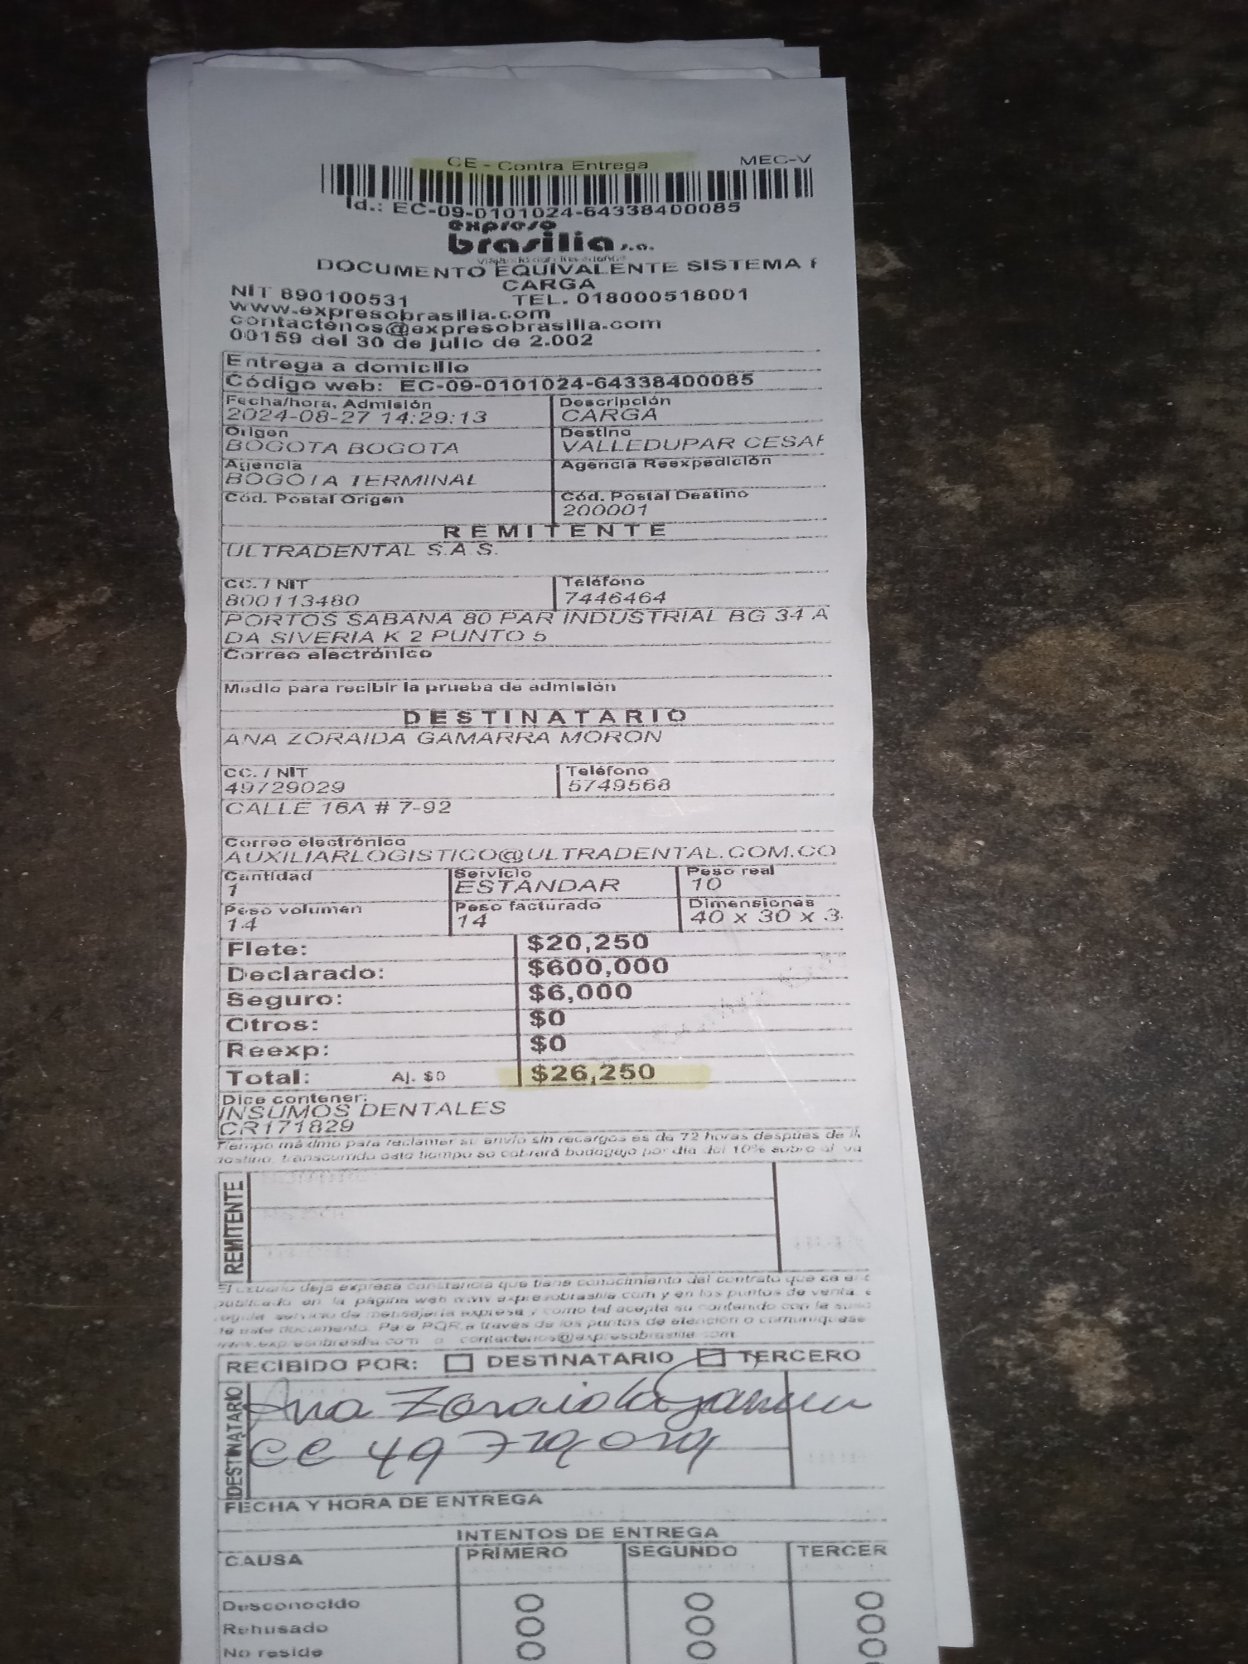 CE - Contra Entrega MEC-V
Id.: EC-09-0101024-64338400085
expreso
brasilia s.a.
DOCUMENTO EQUIVALENTE SISTEMA
CARGA
NIT 890100531 TEL. 018000518001
www.expresobrasilia.com
contactenos@expresobrasilia.com
00159 del 30 de julio de 2.002
Entrega a domicilio
Código web: EC-09-0101024-64338400085
Fecha/hora. Admisión Descripción
2024-08-27 14:29:13 CARGA
Origen Destino
BOGOTA BOGOTA VALLEDUPAR CESAR
Agencia Agencia Reexpedición
BOGOTA TERMINAL
Cód. Postal Origen Cód. Postal Destino
200001
REMITENTE
ULTRADENTAL S.A.S.
CC. / NIT Teléfono
800113480 7446464
PORTOS SABANA 80 PAR INDUSTRIAL BG 34 A
DA SIVERIA K 2 PUNTO 5
Correo electrónico
Medio para recibir la prueba de admisión
DESTINATARIO
ANA ZORAIDA GAMARRA MORON
CC. / NIT Teléfono
49729029 5749568
CALLE 16A # 7-92
Correo electrónico
AUXILIARLOGISTICO@ULTRADENTAL.COM.CO
Cantidad Servicio Peso real
1 ESTANDAR 10
Peso volumen Peso facturado Dimensiones
14 14 40 x 30 x 3
Flete: $20,250
Declarado: $600,000
Seguro: $6,000
Otros: $0
Reexp: $0
Total: Aj. $0 $26,250
Dice contener:
INSUMOS DENTALES
CR171829
Tiempo máximo para reclamar su envío sin recargos es de 72 horas despues de
destino, transcurrido este tiempo se cobrará bodegaje por día del 10% sobre el
REMITENTE
El usuario deja expresa constancia que tiene conocimiento del contrato que se
publicado en la página web www.expresobrasilia.com y en los puntos de venta,
servicio de mensajería expresa y como tal acepta su contenido con la
de este documento. Para PQR a través de los puntos de atención o comuníquese
www.expresobrasilia.com o contactenos@expresobrasilia.com
RECIBIDO POR: DESTINATARIO TERCERO
DESTINATARIO
Ana Zoraida Gamarra
CC 49729029
FECHA Y HORA DE ENTREGA
INTENTOS DE ENTREGA
CAUSA PRIMERO SEGUNDO TERCER
Desconocido
Rehusado
No reside